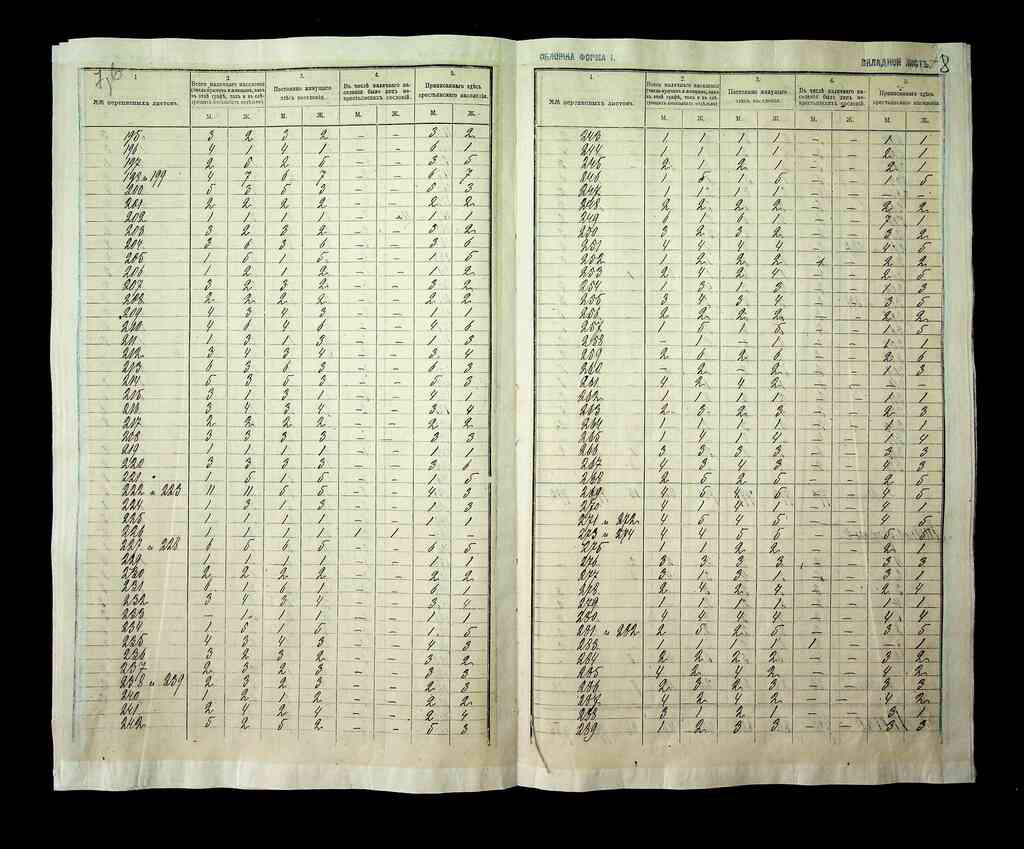 ОБЛОЖКА ФОРМА I.
ВКЛАДНОЙ ЛИСТЪ. 8
1. 2. 3. 4. 5.
№№ перепис­ныхъ листовъ. Всего наличнаго населенія Постоянно живущаго здѣсь населенія. Въ числѣ наличнаго населенія было лицъ некрестьянскихъ сословій. Приписаннаго здѣсь крестьянскаго населенія.
М. Ж. М. Ж. М. Ж. М. Ж.
195 3 2 3 2 — — 3 2
196 4 1 4 1 — — 6 1
197 2 5 2 5 — — 3 5
198 и 199 4 7 6 7 — — 6 7
200 5 3 5 3 — — 5 3
201 2 2 2 2 — — 2 2
202 1 1 1 1 — 1 1
203 3 2 3 2 — — 3 2
204 3 6 3 6 — — 3 6
205 1 5 1 5 — — 1 5
206 1 2 1 2 — — 1 2
207 3 2 3 2 — — 3 2
208 2 2 2 2 — — 2 2
209 4 3 4 3 — — 1 1
210 4 6 4 6 — — 4 6
211 1 3 1 3 — — 1 3
212 3 4 3 4 — — 3 4
213 6 3 6 3 — — 6 3
214 5 3 5 3 — — 5 3
215 3 1 3 1 — — 4 1
216 3 4 3 4 — — 3 4
217 2 2 2 2 — — 2 2
218 3 3 3 3 — — 3 3
219 1 1 1 1 — — 1 1
220 3 3 3 3 — — 3 6
221 1 5 1 5 — — 1 5
222 и 223 11 11 5 5 — — 4 3
224 1 3 1 3 — — 1 3
225 1 1 1 1 — — 1 1
226 1 1 1 1 1 1 — —
227 и 228 6 5 6 5 — — 6 5
229 1 1 1 1 — — 1 1
230 2 2 2 2 — — 2 2
231 6 1 6 1 — — 6 1
232 3 4 3 4 — — 3 4
233 — 1 1 1 — — 1 1
234 1 5 1 5 — — 1 5
235 4 3 4 3 — — 4 3
236 3 2 3 2 — — 3 2
237 2 3 2 3 — — 3 3
238 и 239 2 3 2 3 — — 2 3
240 1 2 1 2 — — 2 2
241 2 4 2 4 — — 2 4
242 5 2 5 2 — — 5 3
1. 2. 3. 4. 5.
№№ переписныхъ листовъ. Всего наличнаго населенія Постоянно живущаго здѣсь населенія. Въ числѣ наличнаго населенія было лицъ некрестьянскихъ сословій. Приписаннаго здѣсь крестьянскаго населенія.
М. Ж. М. Ж. М. Ж. М. Ж.
243 1 1 1 1 — — 1 1
244 1 1 1 1 — — 2 1
245 2 1 2 1 — — 2 1
246 1 5 1 5 — — 1 5
247 1 1 1 1 — — — —
248 2 2 2 2 — — 2 2
249 6 1 6 1 — — 7 1
250 3 2 3 2 — — 3 2
251 4 4 4 4 — — 4 5
252 1 2 2 2 — 2 2
253 2 4 2 4 — — 2 5
254 1 3 1 3 — — 1 3
255 3 4 3 4 — — 3 5
256 2 2 2 2 — — 2 2
257 1 5 1 5 — — 1 5
258 — 1 — 1 — — 1 1
259 2 6 2 6 — — 2 6
260 — 2 — 2 — — 1 3
261 4 2 4 2 — — — —
262 1 1 1 1 — — 1 1
263 2 3 2 3 — — 2 3
264 1 1 1 1 — — 1 1
265 1 4 1 4 — — 1 4
266 3 3 3 3 — — 3 3
267 4 3 4 3 — — 4 3
268 2 5 2 5 — — 2 5
269 4 5 4 5 — — 4 5
270 4 1 4 1 — — 4 1
271 и 272 4 5 4 5 — — 4 5
273 и 274 4 4 5 5 — — 5
275 1 1 2 2 — — 2 1
276 3 3 3 3 — — 3 3
277 3 1 3 1 — — 3 1
278 2 4 2 4 — — 2 4
279 1 1 1 1 — — 1 1
280 4 4 4 4 — — 4 4
281 и 282 2 5 2 5 — — 3 5
283 1 1 1 1 1 — — 1
284 2 2 2 2 — — 3 2
285 4 2 4 2 — — 4 2
286 2 3 2 3 — — 3 3
287 4 2 4 2 — — 4 2
288 3 1 2 1 — — 3 1
289 1 2 3 3 — — 3 3